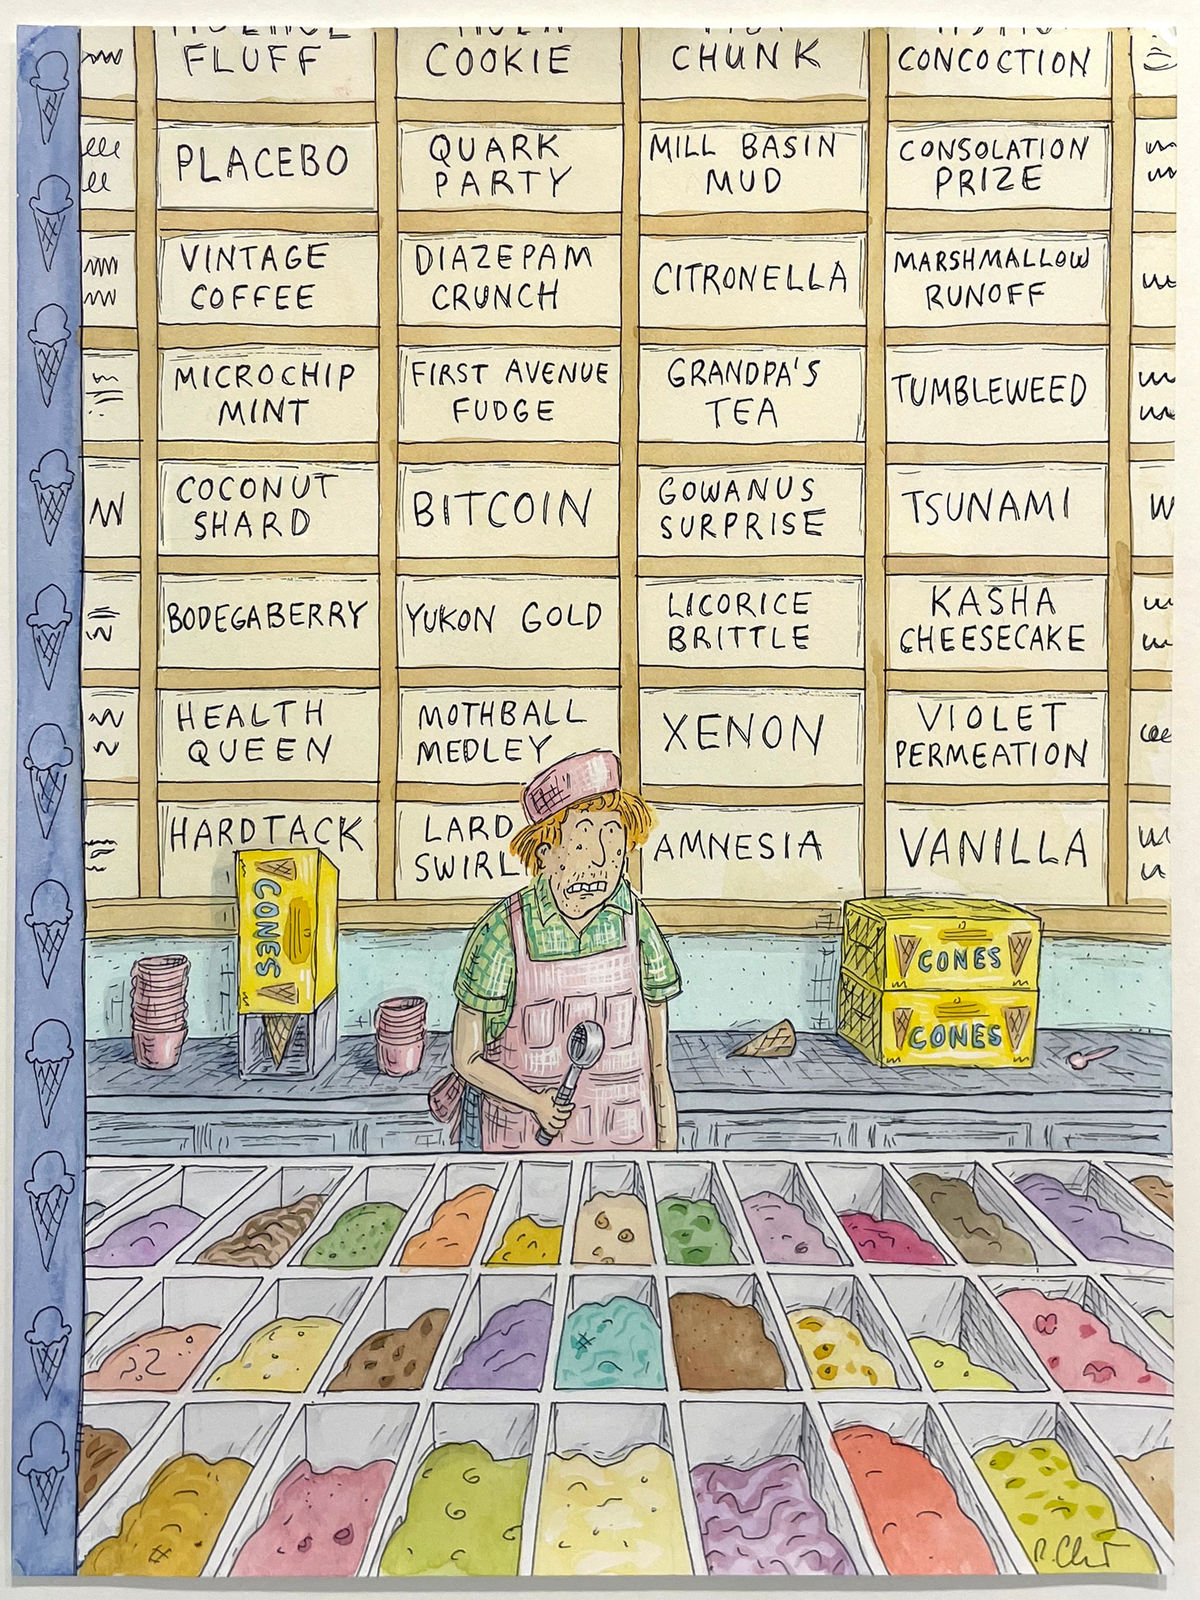 FLUFF
COOKIE
CHUNK
CONCOCTION
PLACEBO
QUARK
PARTY
MILL BASIN
MUD
CONSOLATION
PRIZE
VINTAGE
COFFEE
DIAZEPAM
CRUNCH
CITRONELLA
MARSHMALLOW
RUNOFF
MICROCHIP
MINT
FIRST AVENUE
FUDGE
GRANDPA'S
TEA
TUMBLEWEED
COCONUT
SHARD
BITCOIN
GOWANUS
SURPRISE
TSUNAMI
BODEGABERRY
YUKON GOLD
LICORICE
BRITTLE
KASHA
CHEESECAKE
HEALTH
QUEEN
MOTHBALL
MEDLEY
XENON
VIOLET
PERMEATION
HARDTACK
LARD
SWIRL
AMNESIA
VANILLA
CONES
CONES
CONES
R. Chast